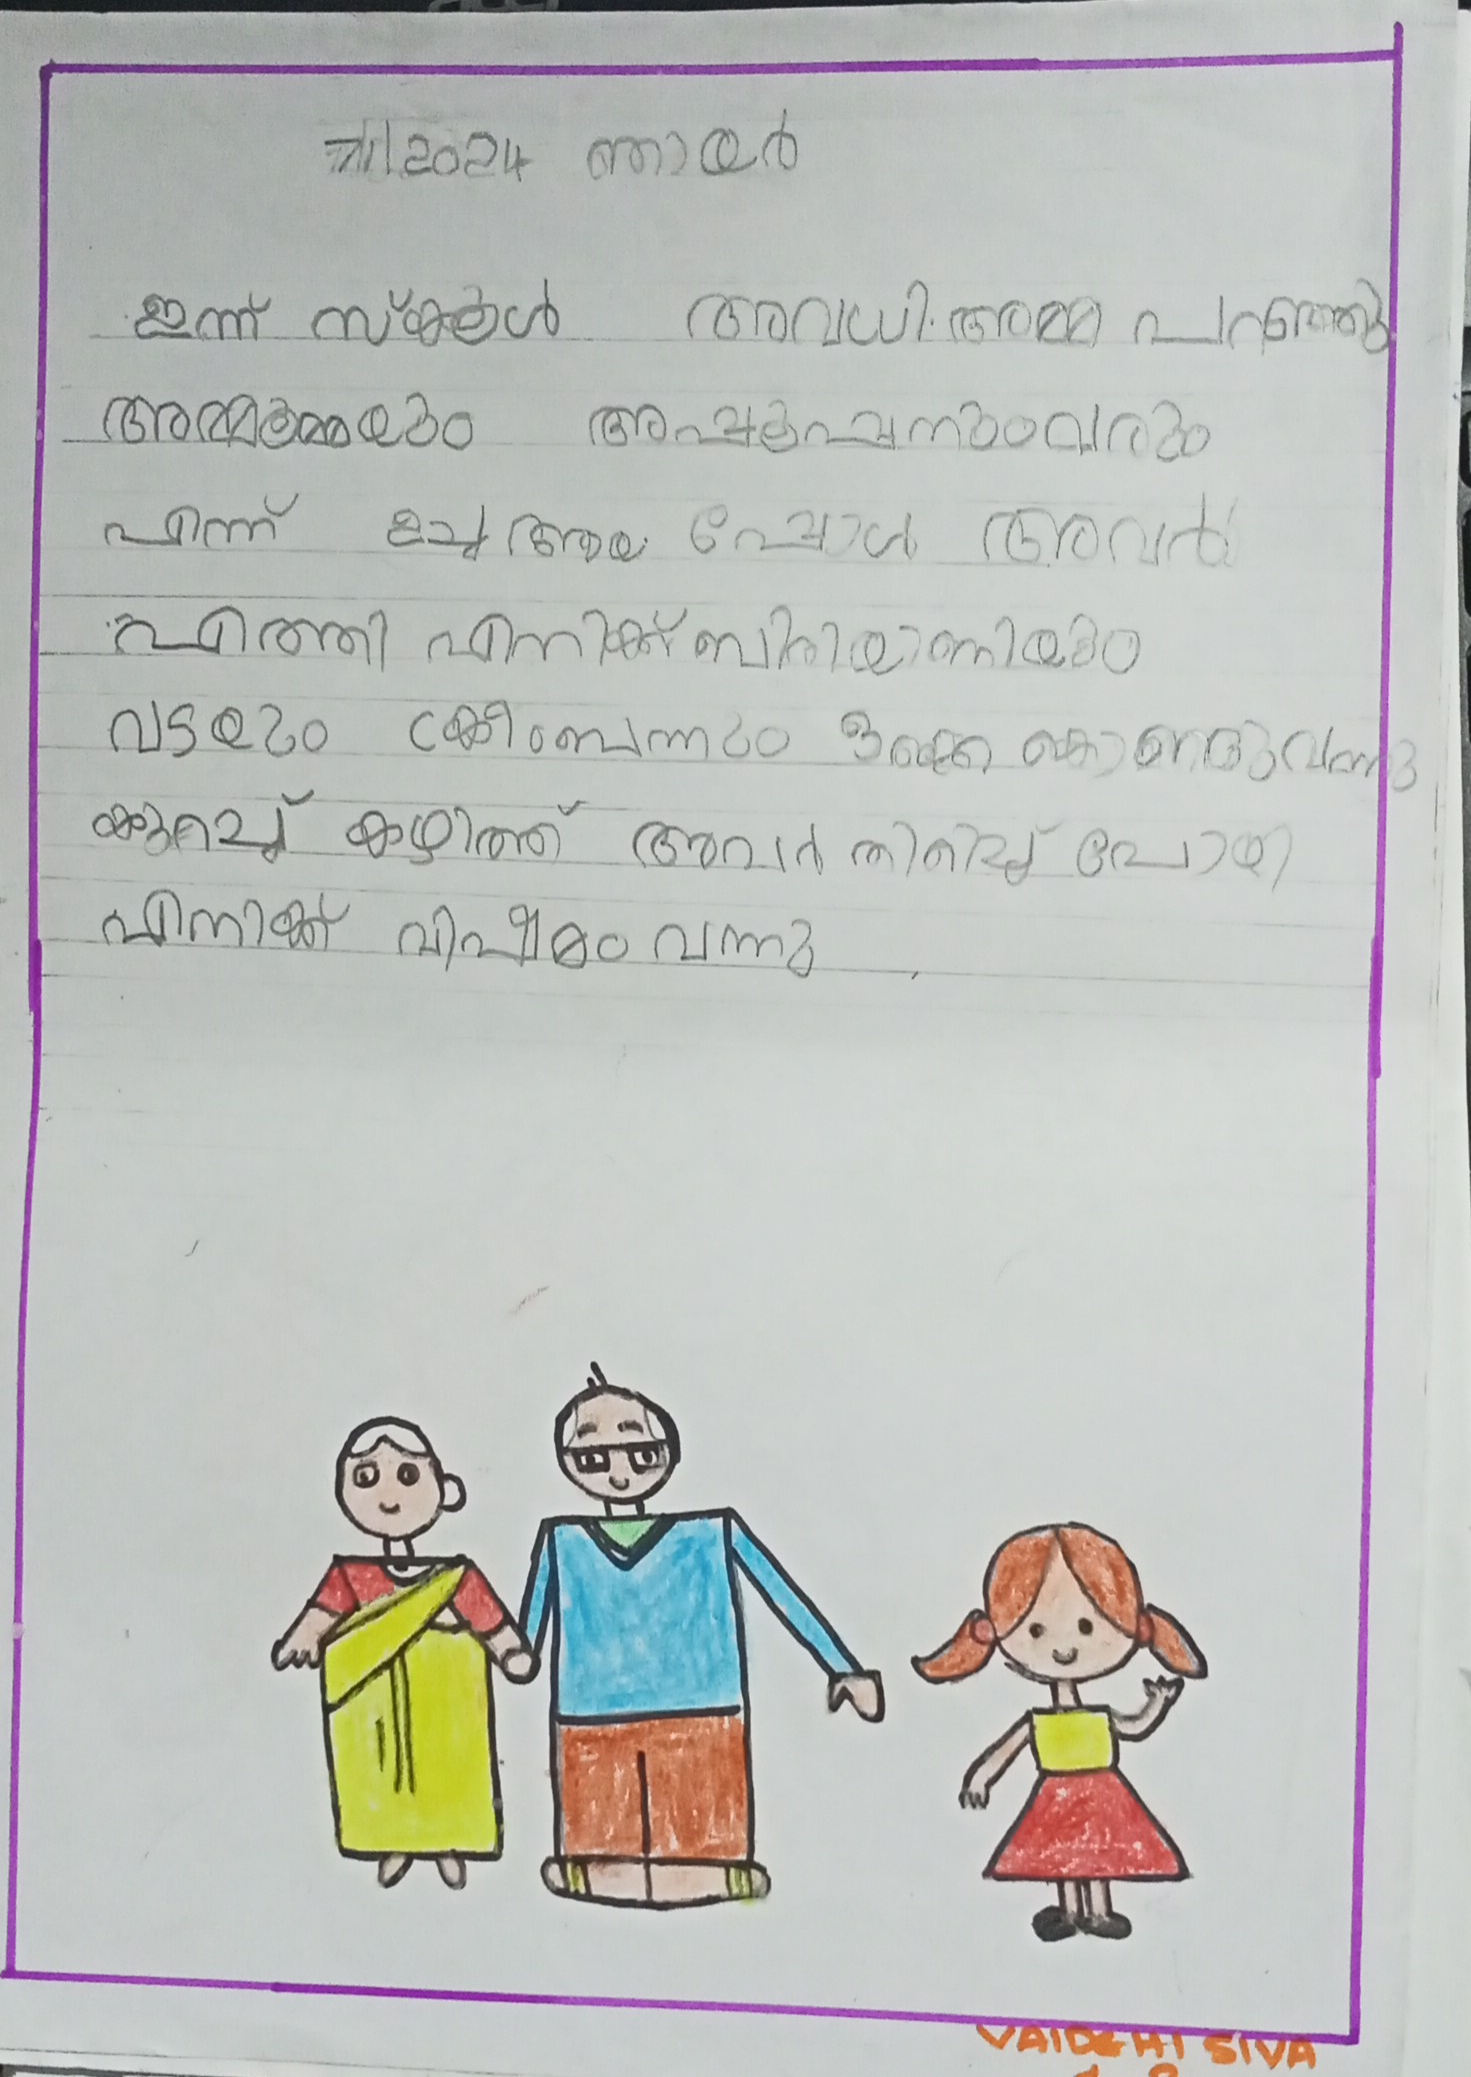 7/1/2024 ഞായർ
ഇന്ന് സ്കൂൾ അവധി. അമ്മ പറഞ്ഞു
അമ്മുമ്മയും അപ്പുപ്പനുംവരും
എന്ന് ഉച്ച ആയ പ്പോൾ അവർ
എത്തി എനിക്ക് ബിരിയാണിയും
വടയും ഒക്കെ കൊണ്ടുവന്നു
കുറച്ച് കഴിത്ത് അവർ തിരിച്ച് പോയി
എനിക്ക് വിഷമം വന്നു
VAIDEHI SIVA